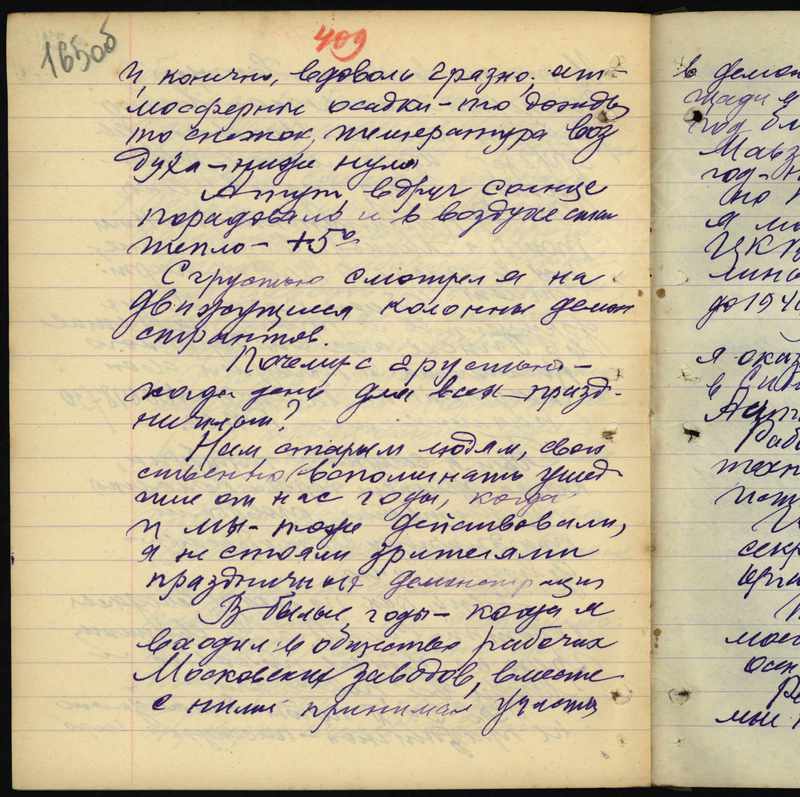 1650б
409
И, конечно, вдоволь грязно, ат-
мосферные осадки – то дождь,
то снежок, температура воз
духа – ниже нуля
А тут, вдруг солнце
порадовало и в воздухе стало
тепло – +5°
С грустью смотрел я на
движущиеся колонны демон
странтов.
Почему с грустью –
когда день для всех – празд-
ничным?
Нам старым людям, свой
ственно вспоминать ушед
шие от нас годы, когда
и мы – тоже действовали,
а не стояли зрителями
праздничных демонстраций
В былые годы – когда я
входил в общество рабочих
Московских заводов, вместе
с ними принимал участие
в демон
щади
под
год – 
то
я
ЦК
до 194
я оказ
в
Рабо
техн
секр
моей
осен
мы